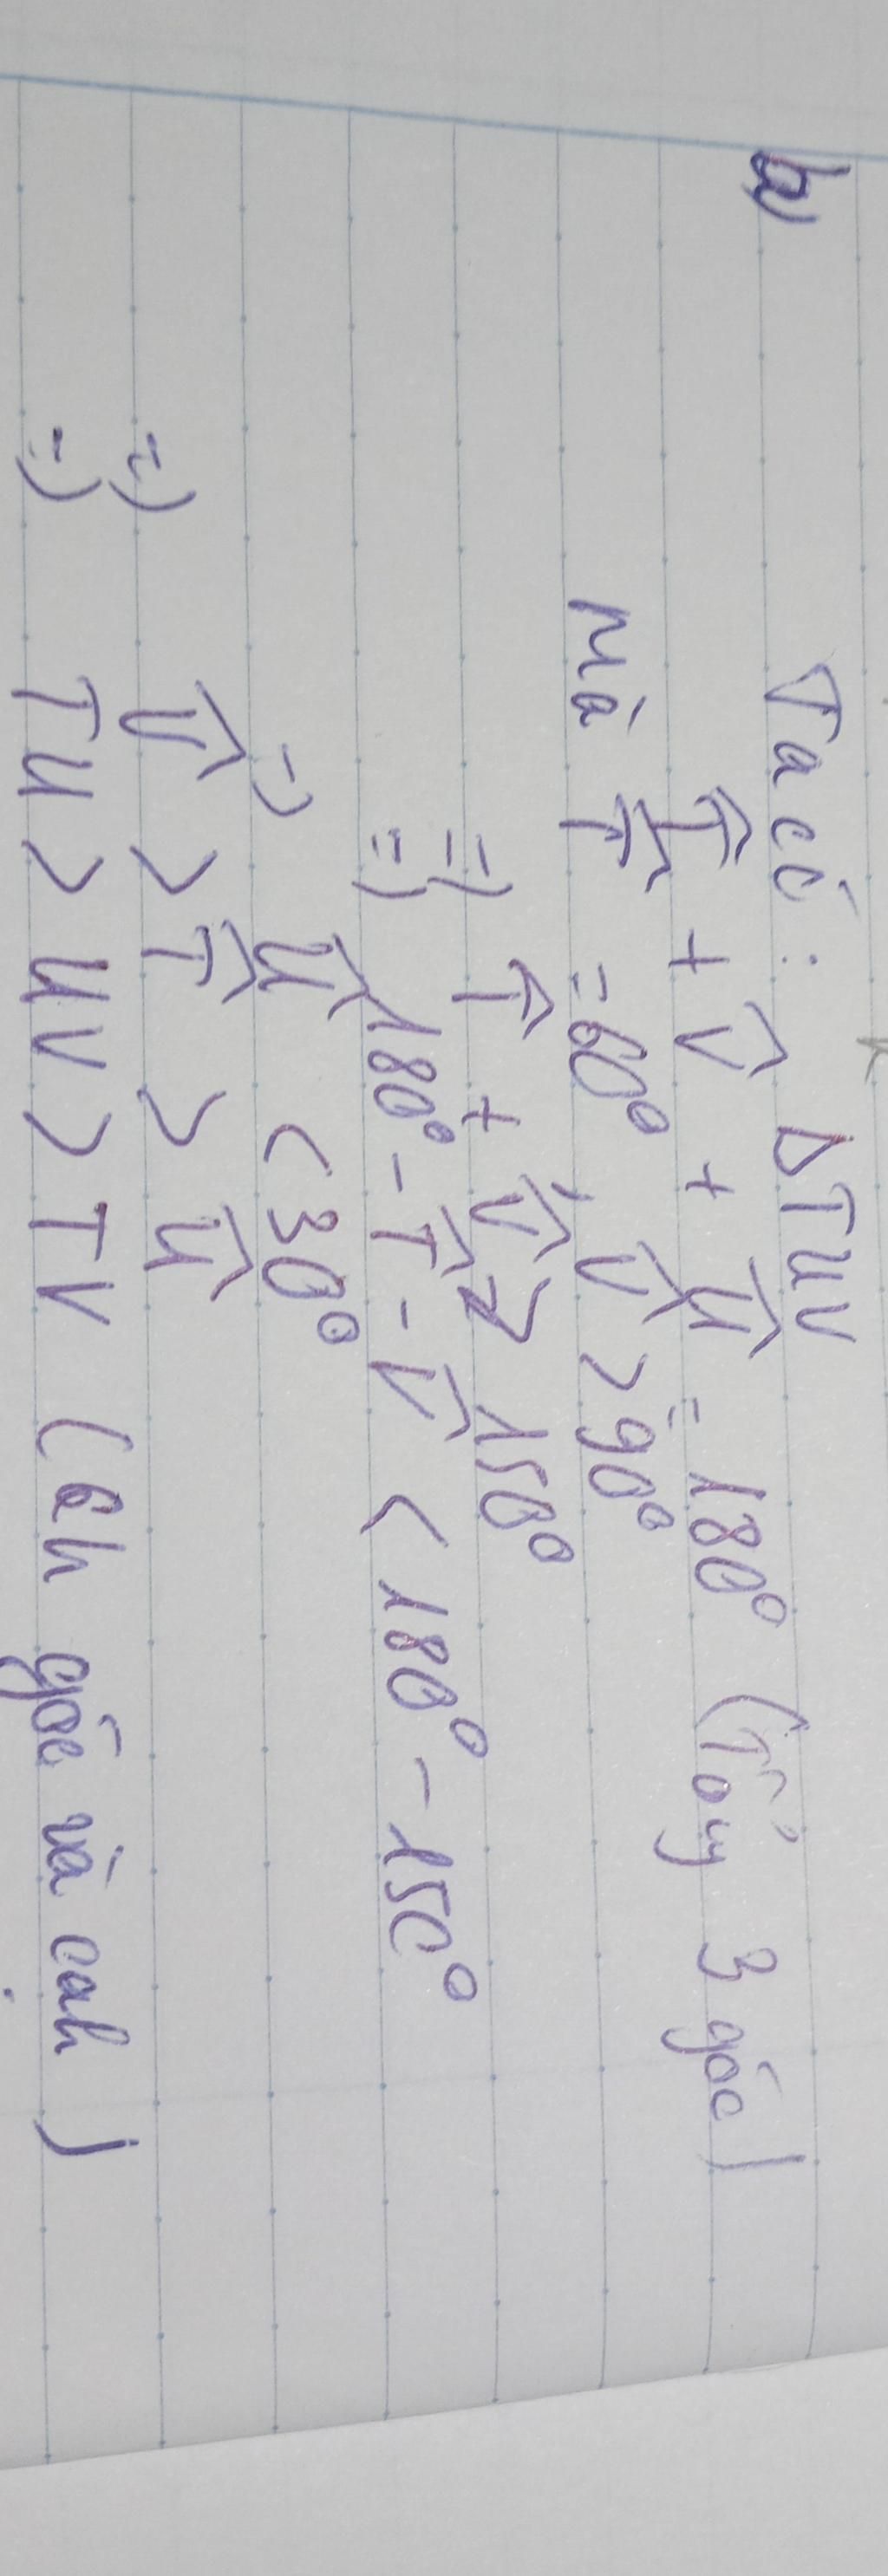 b,
Ta có: ΔTUV
T̂ + V̂ + Û = 180° (Tổng 3 góc)
Mà T̂ = 60°, V̂ > 90°
=) T̂ + V̂ > 150°
=) 180° - T̂ - V̂ < 180° - 150°
=) Û < 30°
=) V̂ > T̂ > Û
=) TU > UV > TV (Qh góc và cạh)